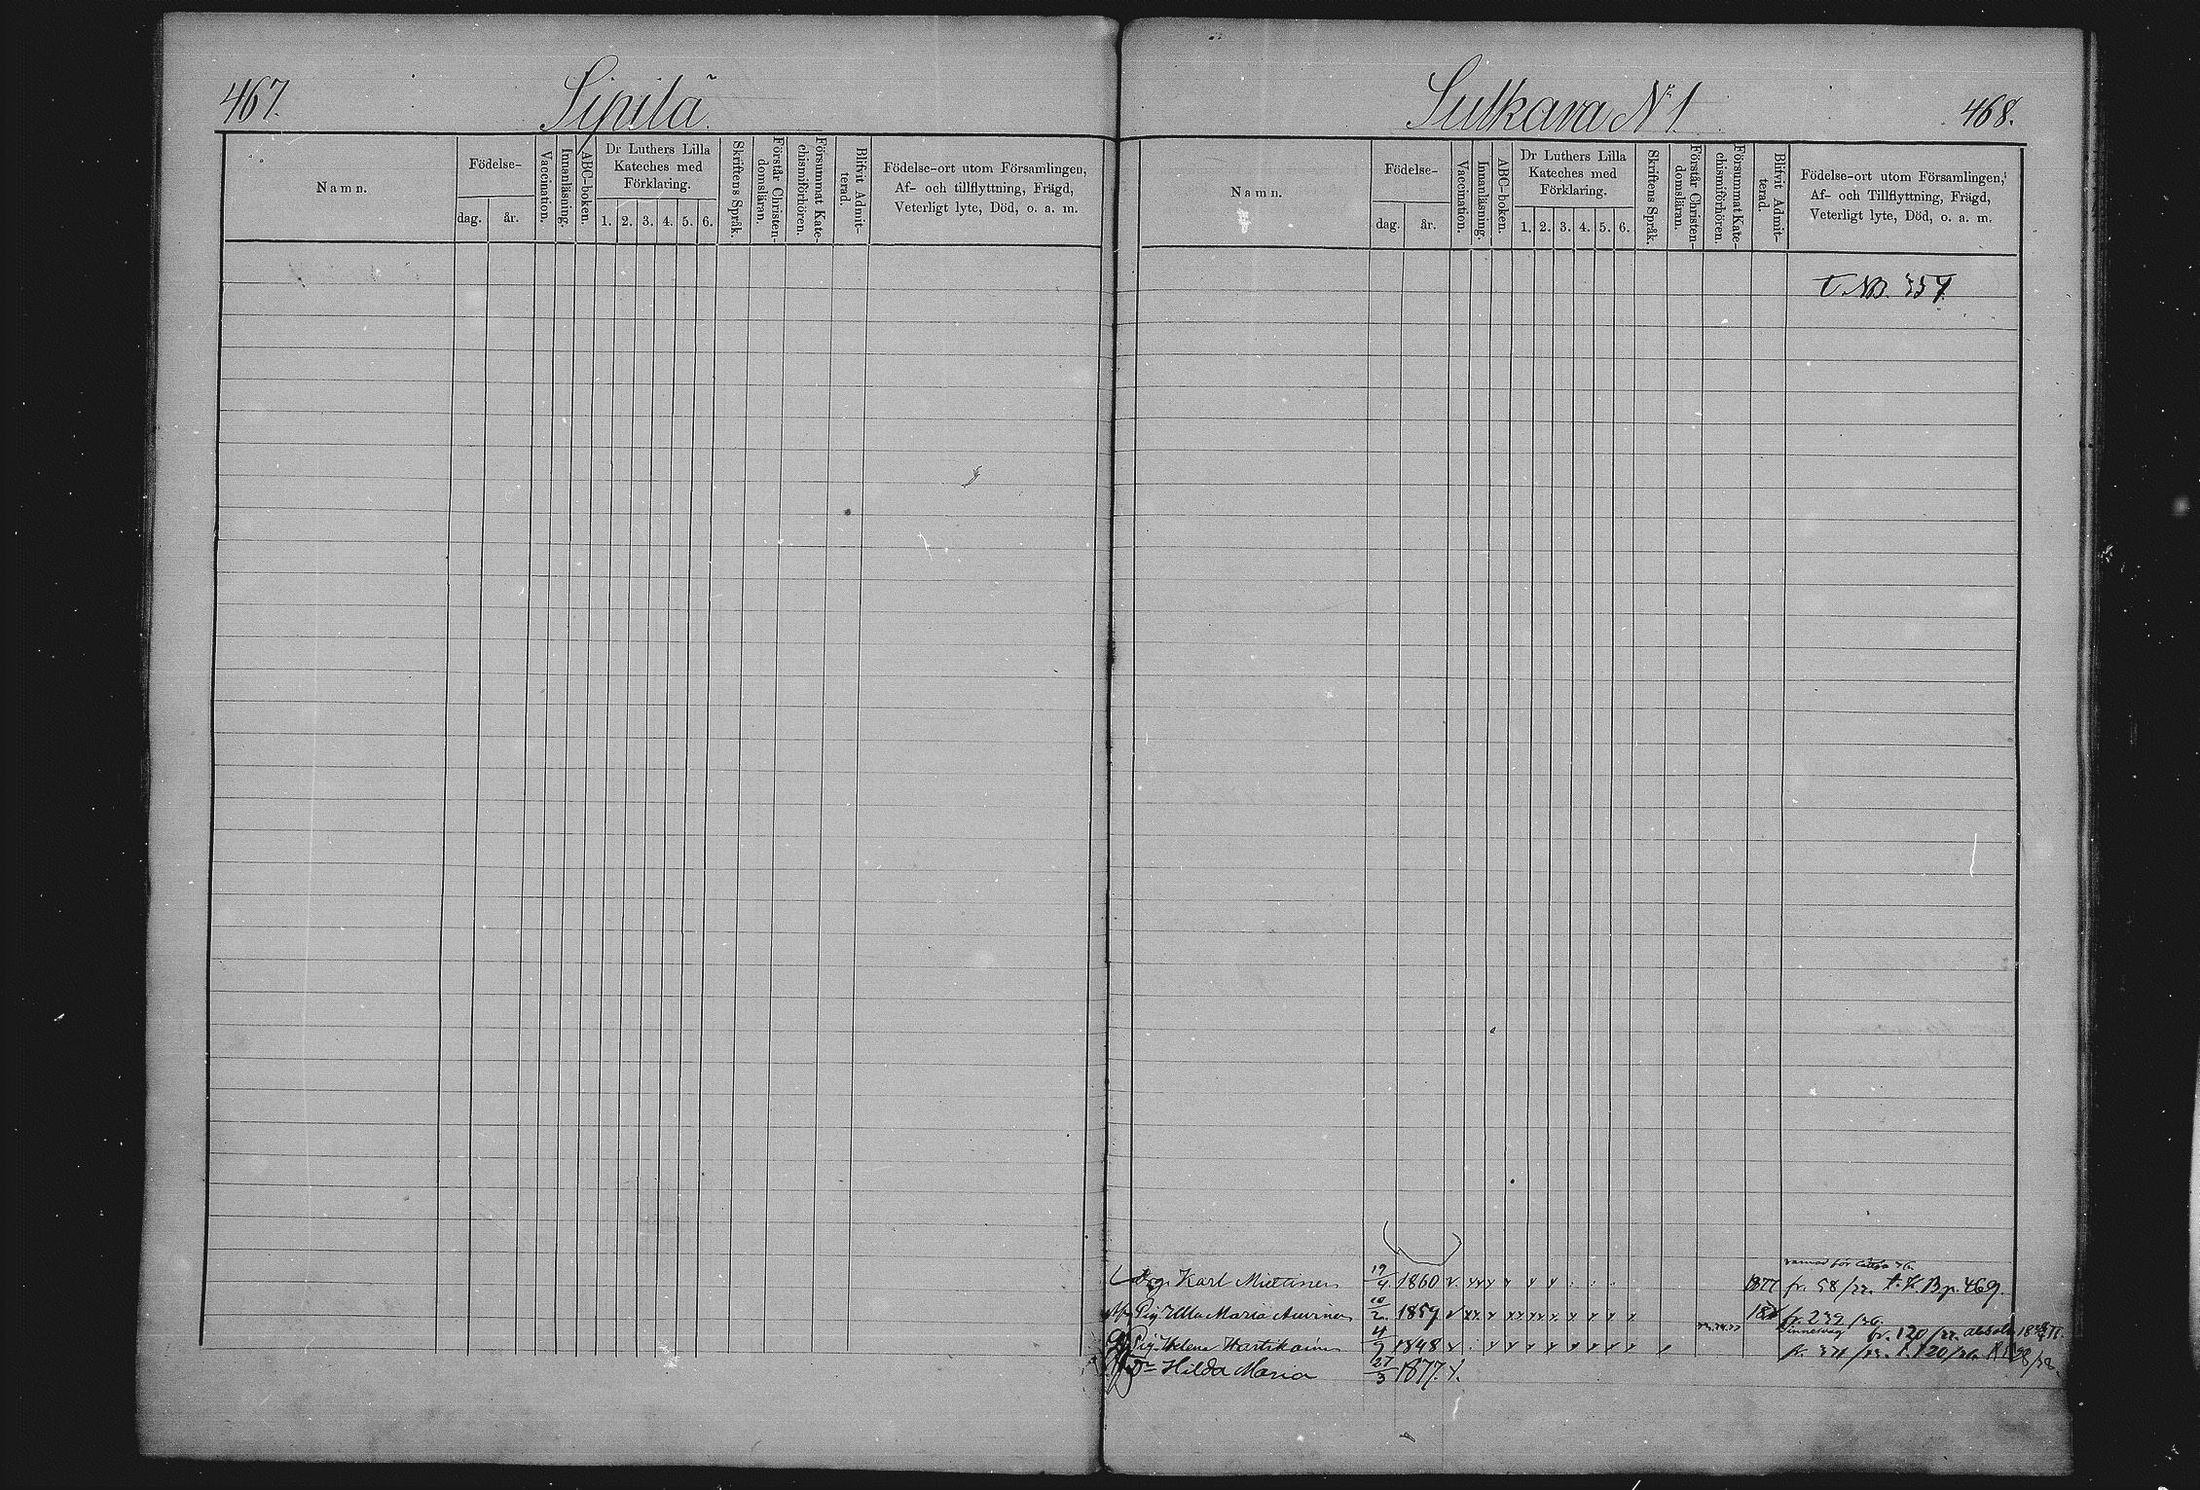 467.
Sipilä
Namn.
Födelse-
dag.
år.
Vaccination.
Innanläsning.
ABC-boken.
Dr Luthers Lilla
Kateches med
Förklaring.
1. 2. 3. 4. 5. 6.
Skriftens Språk.
Förstår Christen-
domsläran.
Försummat Kate-
chismiförhören.
Blifvit Admit-
terad.
Födelse-ort utom Församlingen,
Af- och tillflyttning, Frägd,
Veterligt lyte, Död, o. a. m.
Sulkava No 1.
468.
Namn.
Födelse-
dag.
år.
Vaccination.
Innanläsning.
ABC-boken.
Dr Luthers Lilla
Kateches med
Förklaring.
1. 2. 3. 4. 5. 6.
Skriftens Språk.
Förstår Christen-
domsläran.
Försummat Kate-
chismiförhören.
Blifvit Admit-
terad.
Födelse-ort utom Församlingen,
Af- och Tillflyttning, Frägd,
Veterligt lyte, Död, o. a. m.
Drg. Karl Miettinen 19/9 1860 1877 fr. 58 p. 469.
Pig. Ulla Maria 10/2 1859 fr. 239
Pig. Helena Hartikainen 4/9 1848 fr. 120
Hilda Maria 27/3 1877